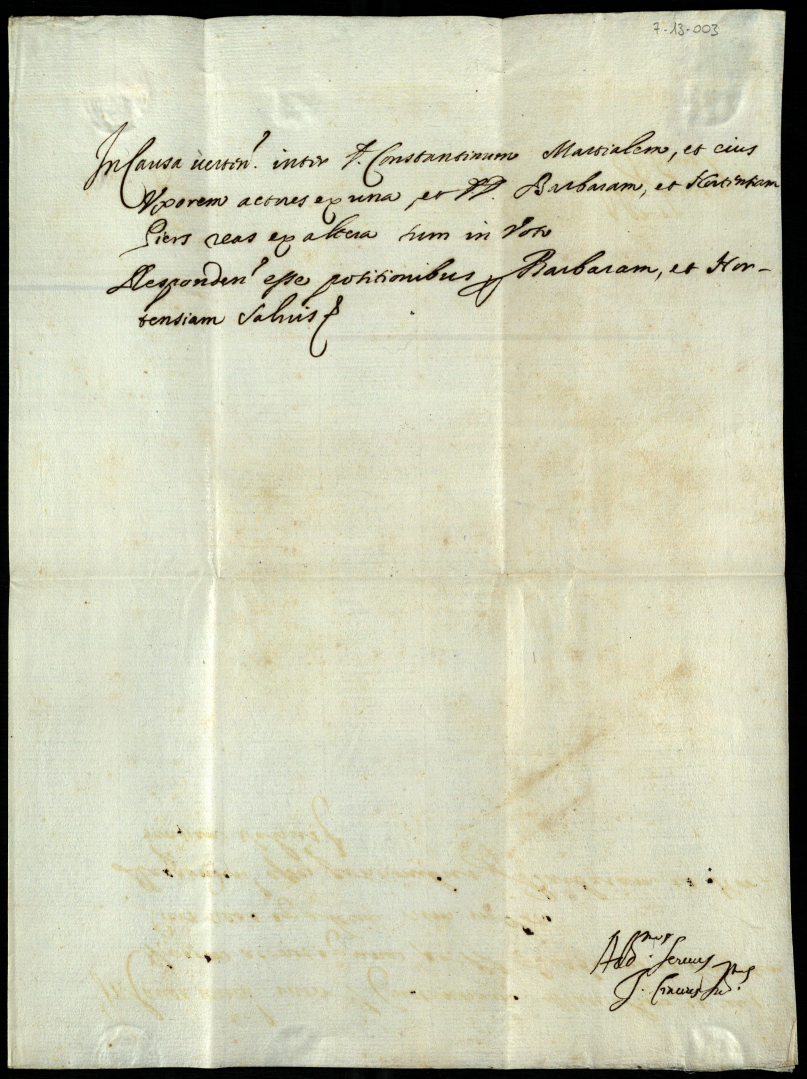 7-13-003
In Causa verten. inter D. Constantinum Martialem, et eius
Uxorem actores ex una, et DD. Barbaram, et Hortentiam
Piers reas ex altera sum in Voto
Responden. esse petitionibus p. Barbaram, et Hor-
tensiam Salvis
Servus